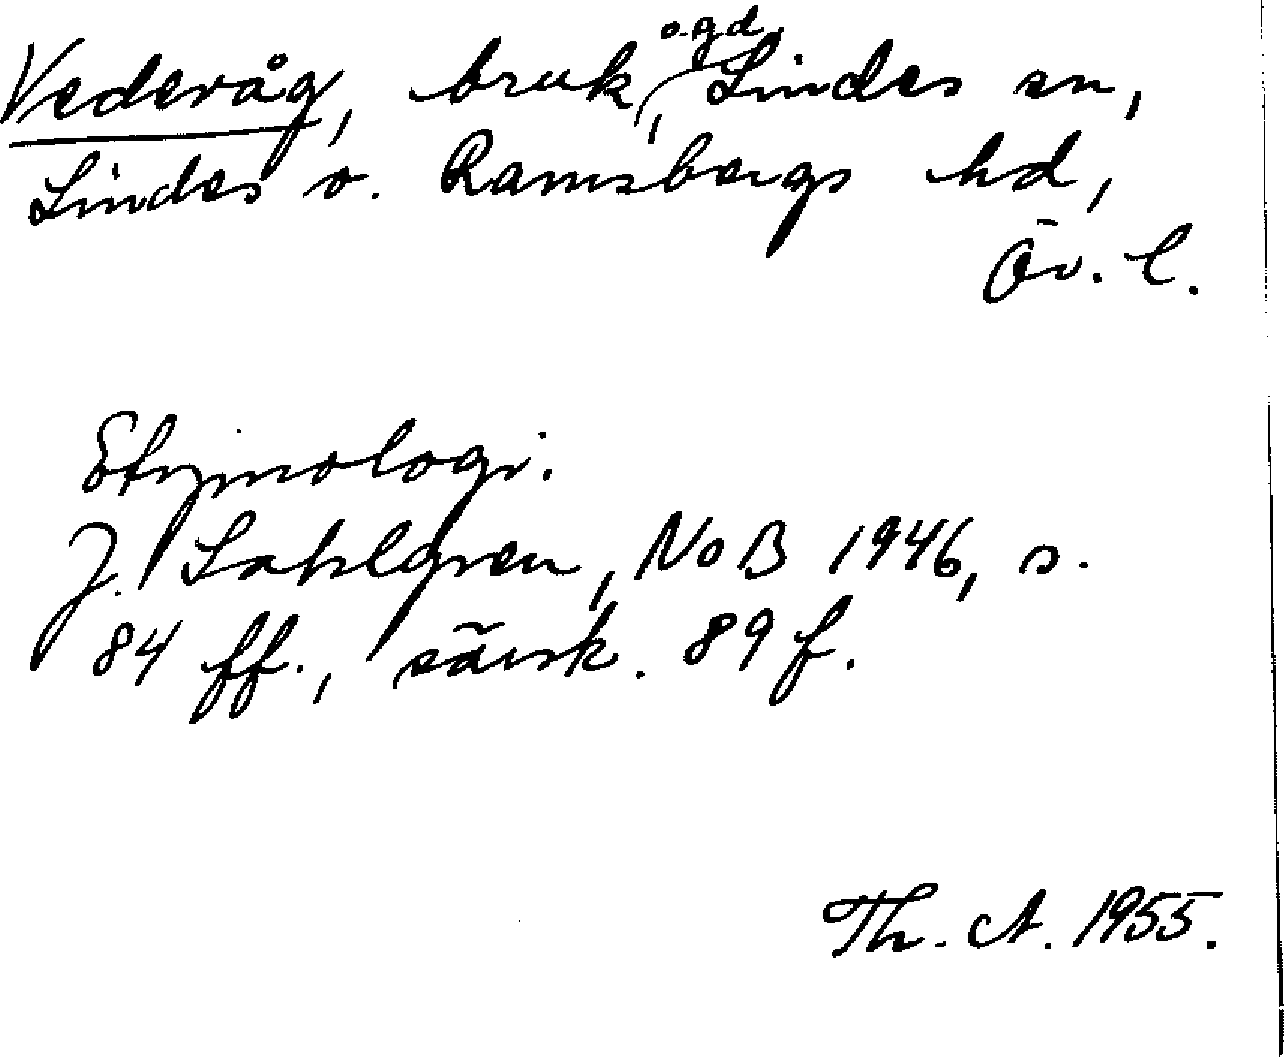 Vedevåg, bruk, ogd, Lindes sn,
Lindes o. Ramsbergs hd,
Öv. l.
Etymologi.
J. Sahlgren, NoB 1946, s.
84 ff., särsk. 89 f.
Th. A. 1955.